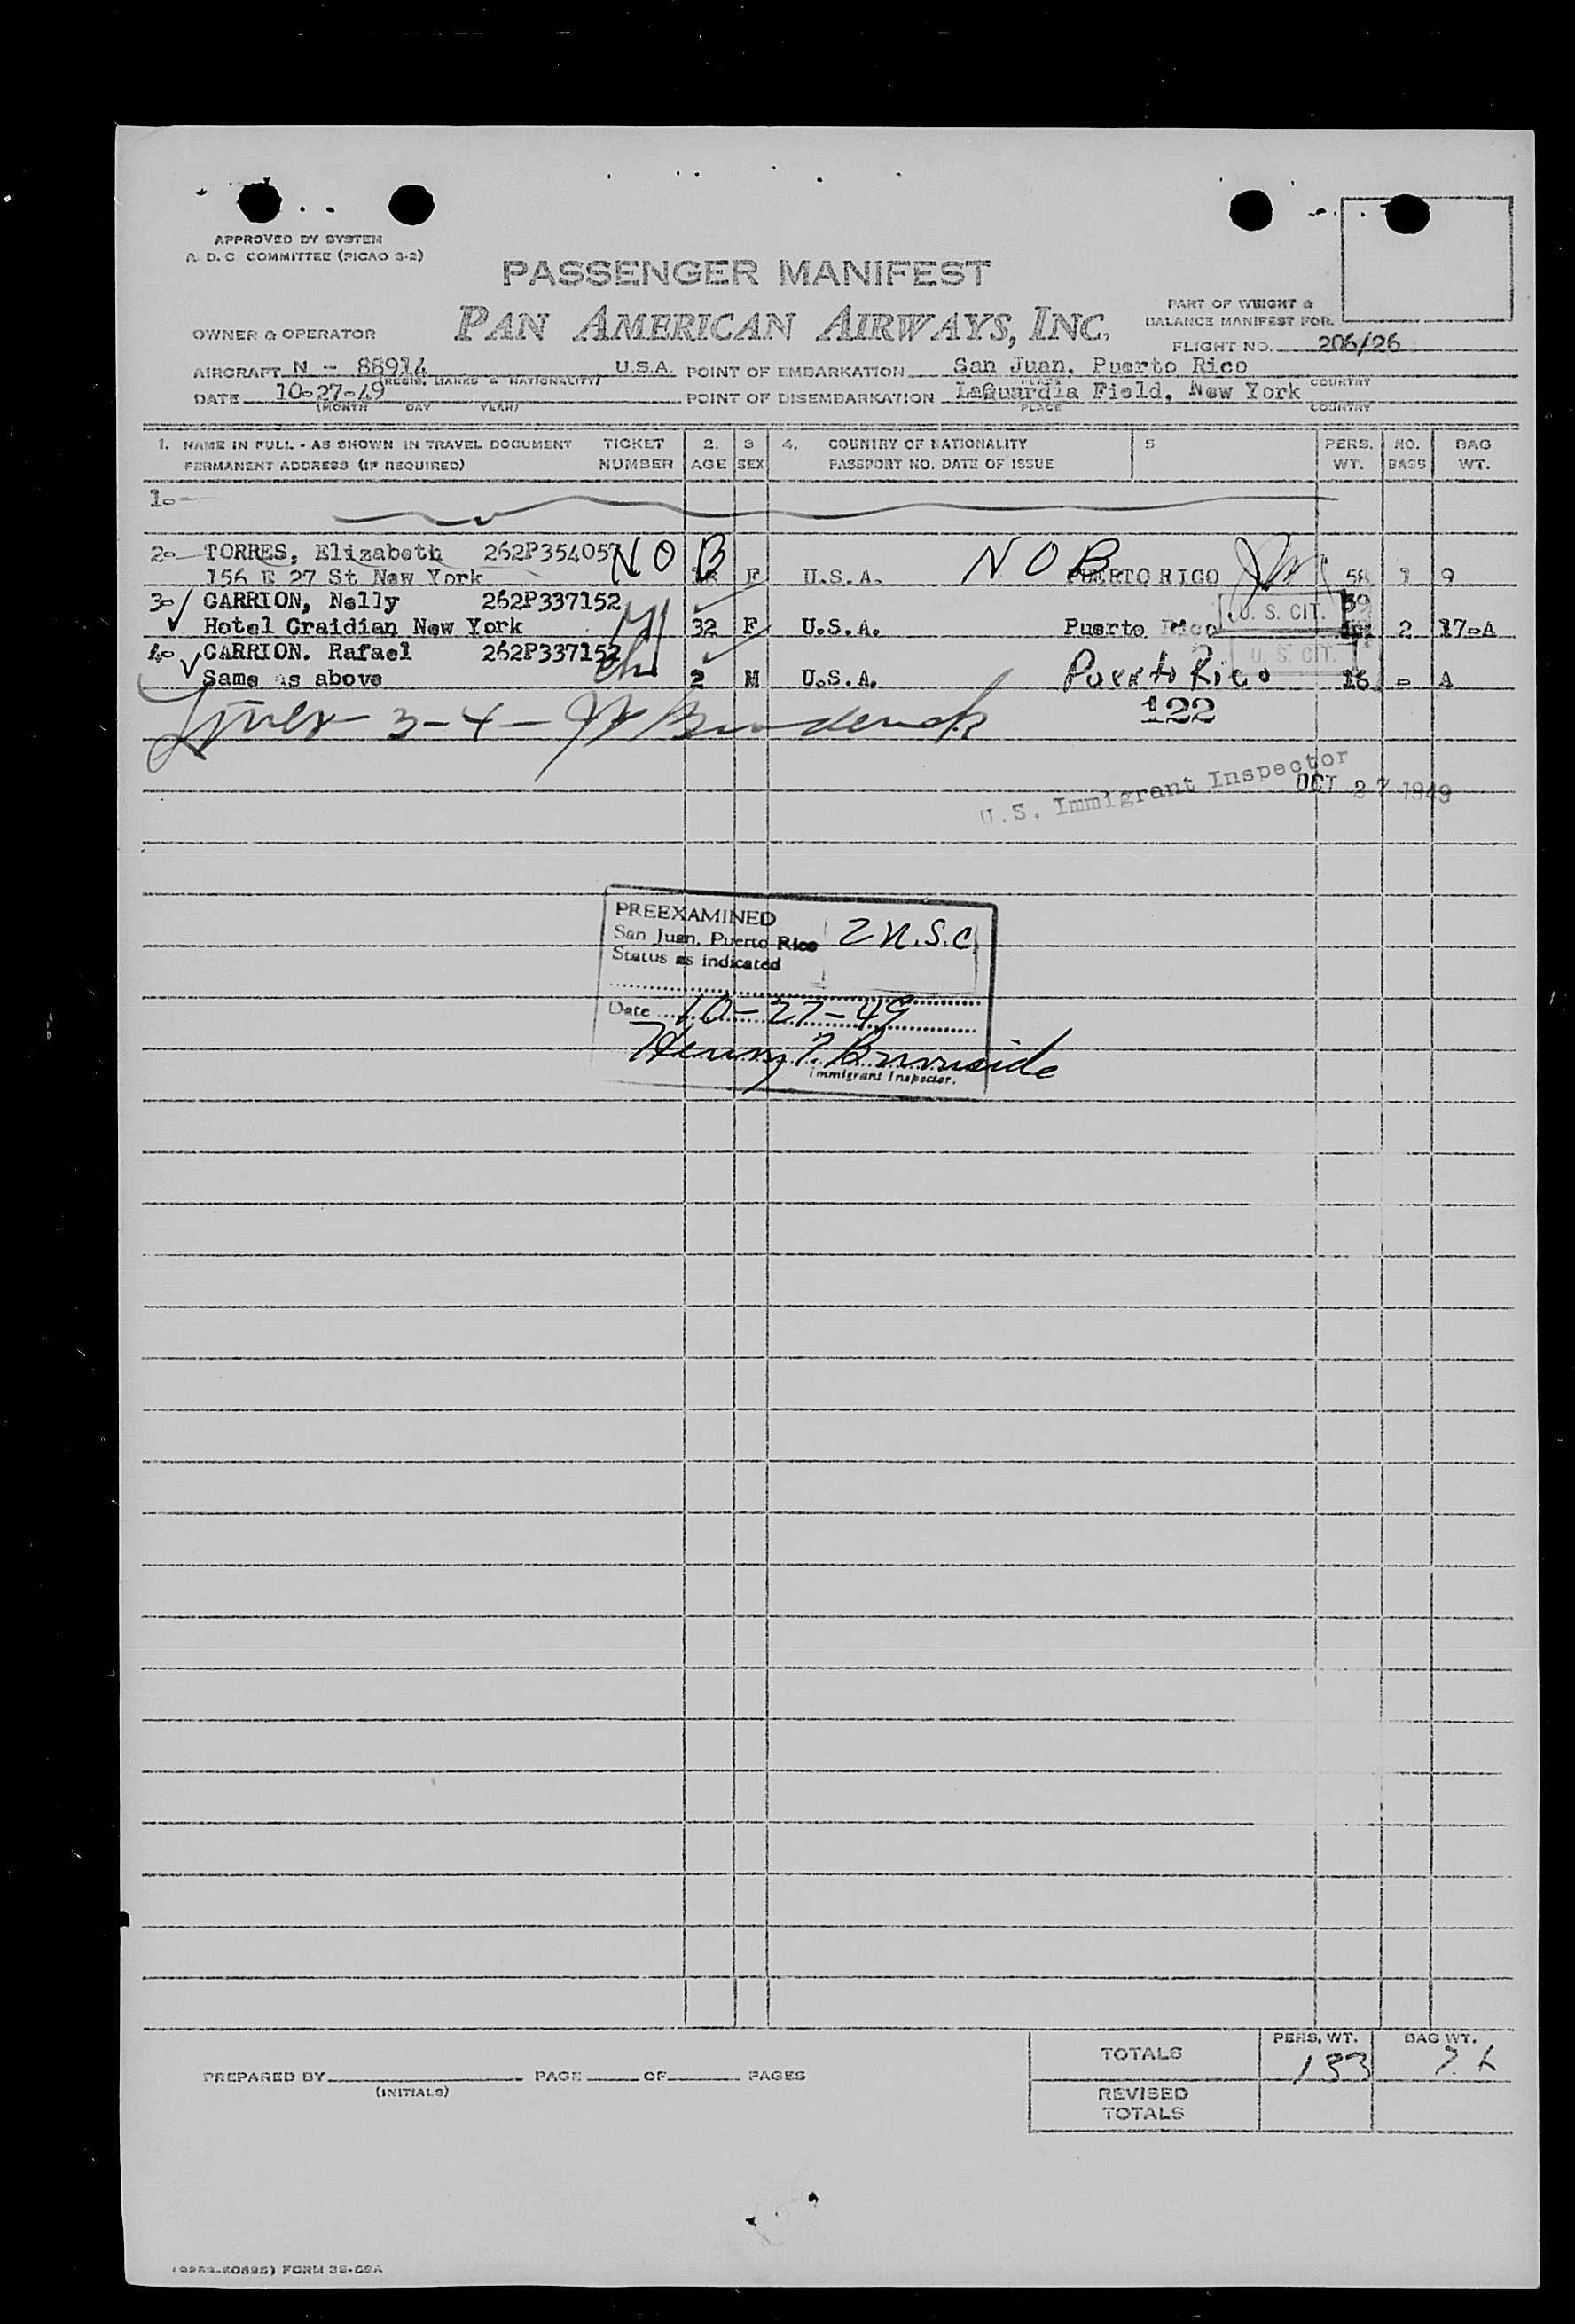 APPROVED BY SYSTEM
A. D. C COMMITTEE (PICAO S-2)
PASSENGER MANIFEST
PAN AMERICAN AIRWAYS, INC.
PART OF WEIGHT &
BALANCE MANIFEST FOR
OWNER & OPERATOR
FLIGHT NO. 206/26
AIRCRAFT N - 88914 U.S.A. POINT OF EMBARKATION San Juan, Puerto Rico
(REGIS. MARKS & NATIONALITY) PLACE COUNTRY
DATE 10-27-49 POINT OF DISEMBARKATION LaGuardia Field, New York
(MONTH DAY YEAR) PLACE COUNTRY
1. NAME IN FULL - AS SHOWN IN TRAVEL DOCUMENT TICKET 2. 3 4. COUNTRY OF NATIONALITY 5 PERS. NO. BAG
PERMANENT ADDRESS (IF REQUIRED) NUMBER AGE SEX PASSPORT NO. DATE OF ISSUE WT. BAGS WT.
1-
2- TORRES, Elizabeth 262P354057 NOB NOB
156 E 27 St New York F U.S.A. PUERTO RICO 58 1 9
3- CARRION, Nelly 262P337152 U. S. CIT. 59
Hotel Graidian New York 32 F U.S.A. Puerto Rico 2 17-A
4- CARRION. Rafael 262P337152 U. S. CIT.
Same as above 2 M U.S.A. Puerto Rico 16 - A
Lines 3-4- 122
U.S. Immigrant Inspector
OCT 27 1949
PREEXAMINED
San Juan, Puerto Rico 2 U.S.C
Status as indicated
Date 10-27-49
Immigrant Inspector.
TOTALS PERS. WT. BAG WT.
133
PREPARED BY PAGE OF PAGES
(INITIALS)
REVISED
TOTALS
FORM